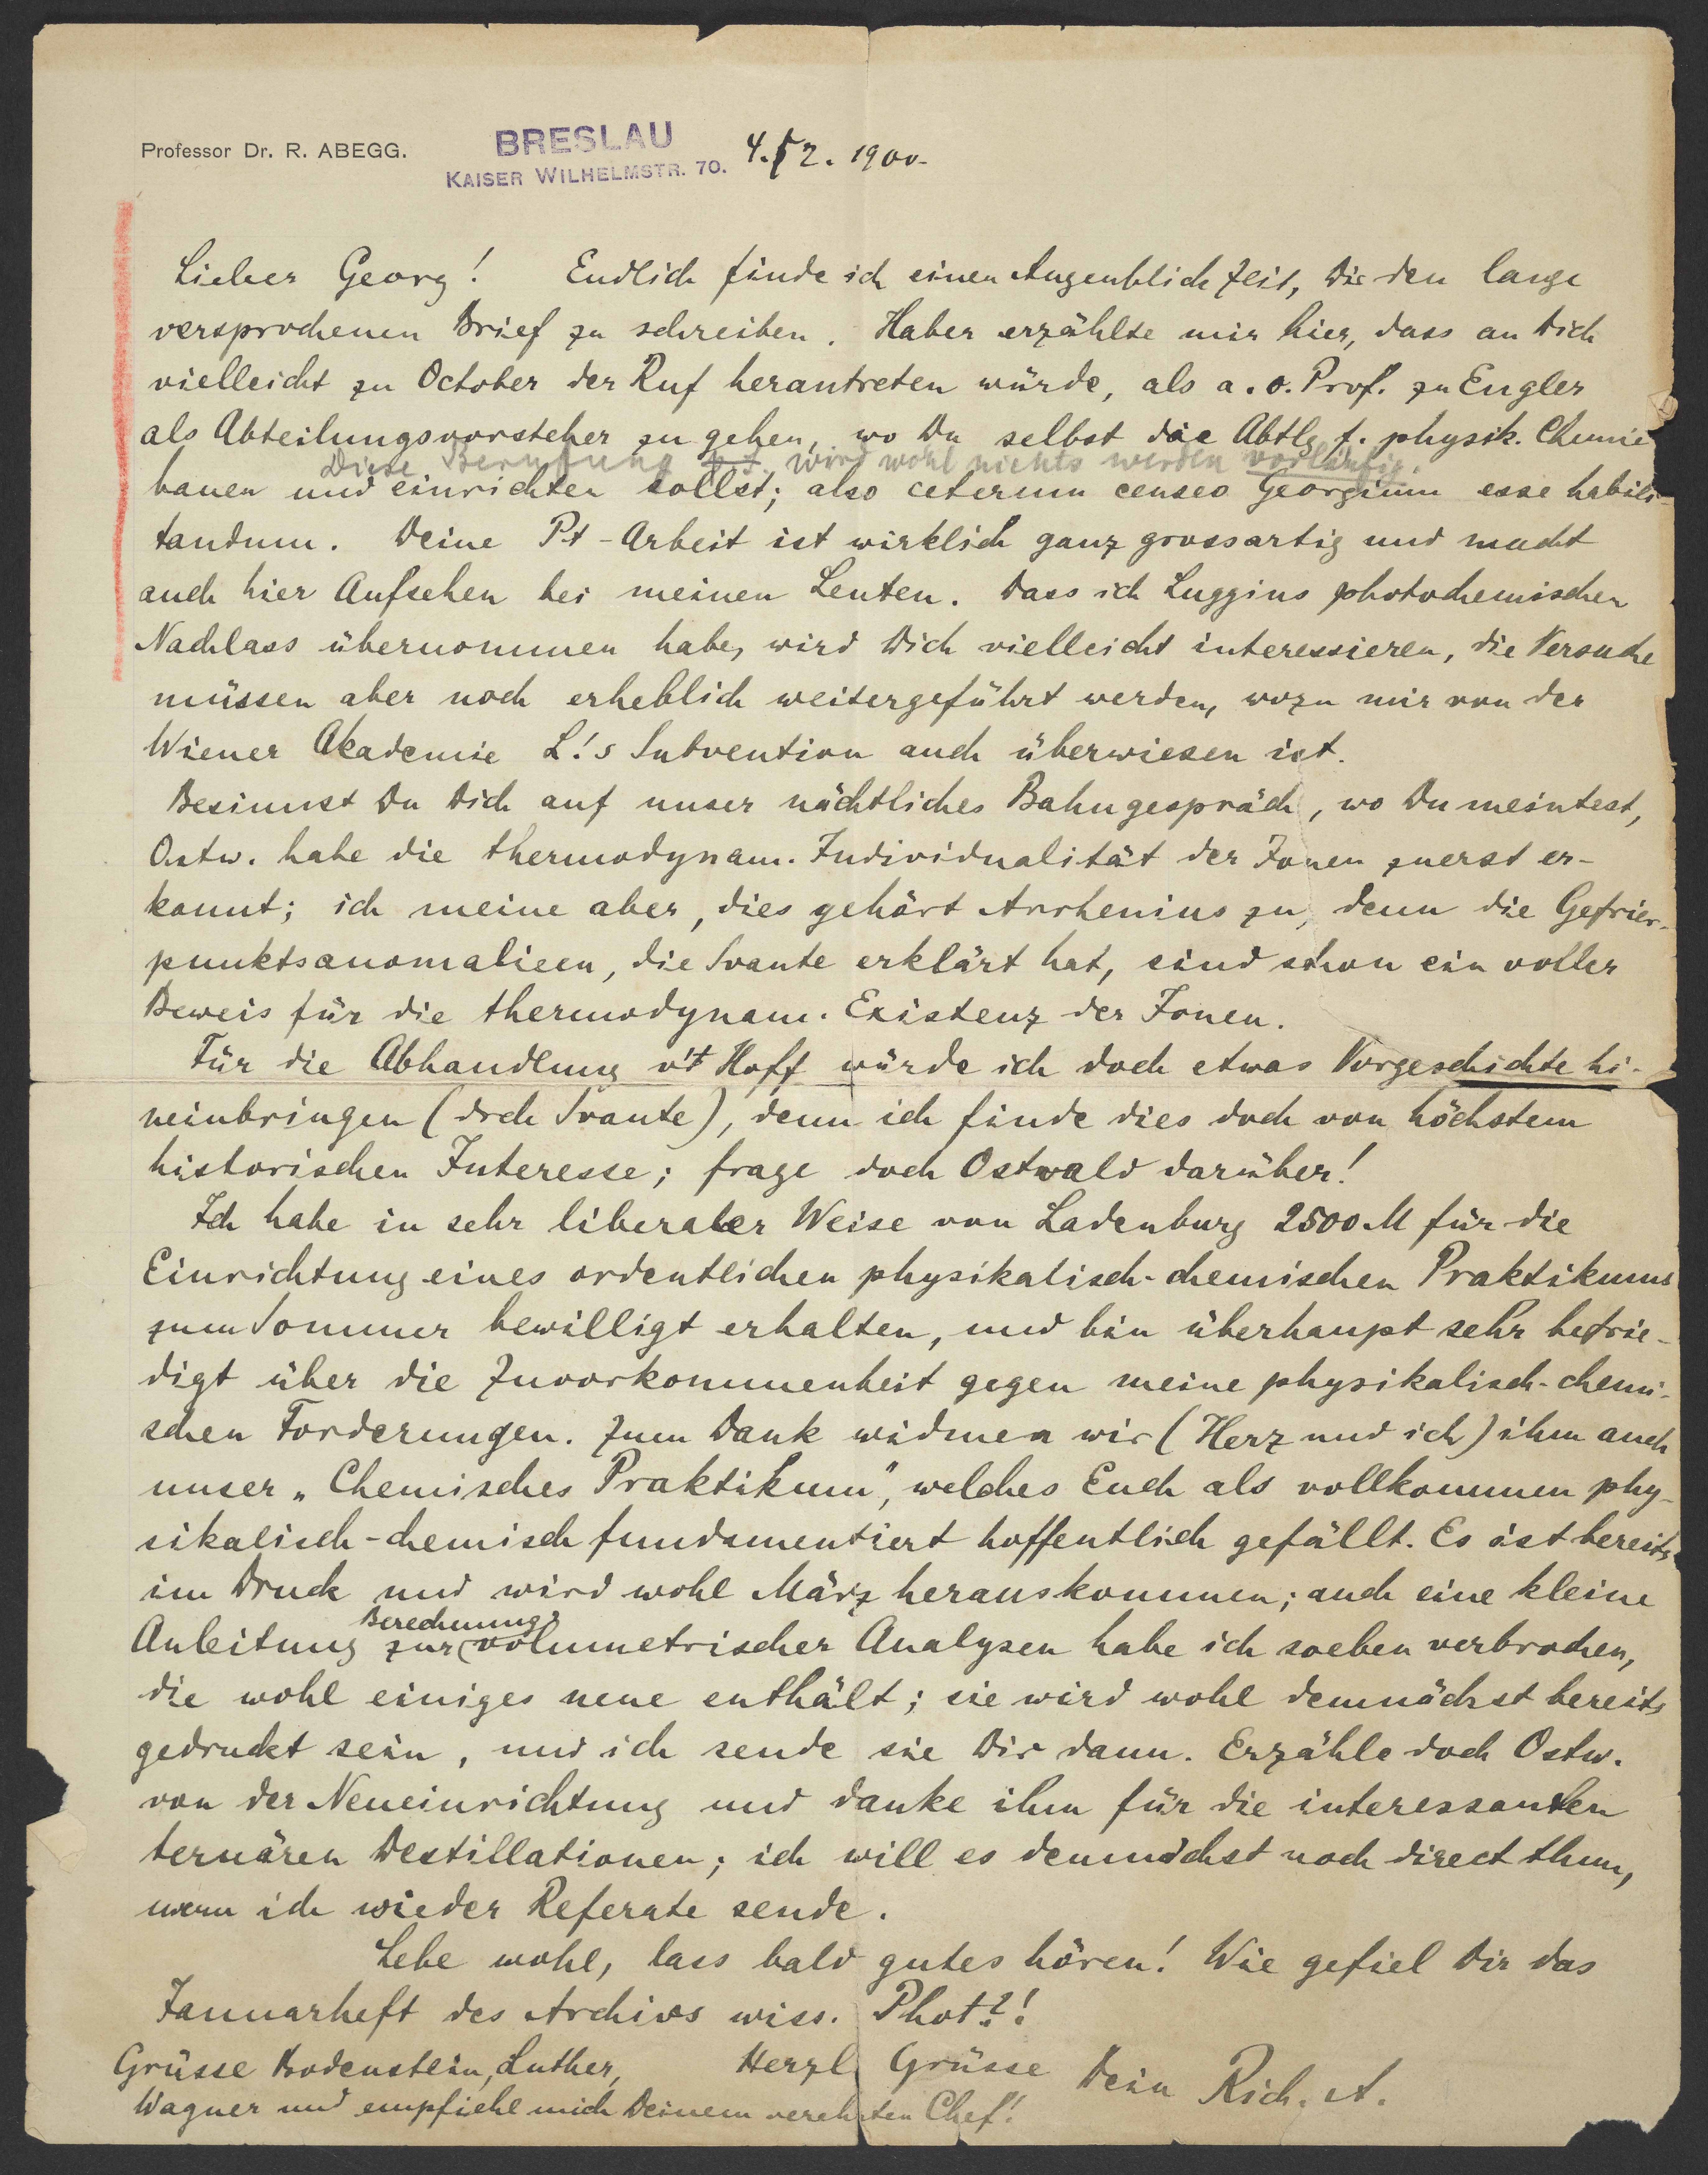 Professor Dr. R. ABEGG.
BRESLAU
KAISER WILHELMSTR. 70.
4. 2. 1900.
Lieber Georg! Endlich finde ich einen Augenblick Zeit, Dir den lange
versprochenen Brief zu schreiben. Haber erzählte mir hier, dass an Dich
vielleicht zu October der Ruf herantreten würde, als a.o. Prof. zu Engler
als Abteilungsvorsteher zu gehen, wo Du selbst die Abtlg f. physik. Chemie
Diese Berufung wird wohl nichts werden vorläufig.
bauen und einrichten sollst; also ceterum censeo Georgium esse habili-
tandum. Deine Pt-Arbeit ist wirklich ganz grossartig und macht
auch hier Aufsehen bei meinen Leuten. Dass ich Luggins photochemischen
Nachlass übernommen habe, wird Dich vielleicht interessieren, die Versuche
müssen aber noch erheblich weitergeführt werden, wozu mir von der
Wiener Akademie L!s Subvention auch überwiesen ist.
Besinnst Du Dich auf unser nächtliches Bahngespräch, wo Du meintest,
Ostw. habe die thermodynam. Individualität der Ionen zuerst er-
kannt; ich meine aber, dies gehört Arrhenius zu, denn die Gefrier-
punktsanomalieen, die Svante erklärt hat, sind schon ein voller
Beweis für die thermodynam. Existenz der Ionen.
Für die Abhandlung v't Hoff würde ich doch etwas Vorgeschichte hi-
neinbringen (drch Svante), denn ich finde dies doch von höchstem
historischen Interesse; frage doch Ostwald darüber!
Ich habe in sehr liberaler Weise von Ladenburg 2500 M für die
Einrichtung eines ordentlichen physikalisch-chemischen Praktikums
zum Sommer bewilligt erhalten, und bin überhaupt sehr befrie-
digt über die Zuvorkommenheit gegen meine physikalisch-chemi-
schen Forderungen. Zum Dank widmen wir (Herz und ich) ihm auch
unser „Chemisches Praktikum", welches Euch als vollkommen phy-
sikalisch-chemisch fundamentiert hoffentlich gefällt. Es ist bereits
im Druck und wird wohl März herauskommen; auch eine kleine
Berechnung
Anleitung zur volumetrischer Analysen habe ich soeben verbrochen,
die wohl einiges neue enthält; sie wird wohl demnächst bereits
gedruckt sein, und ich sende sie Dir dann. Erzähle doch Ostw.
von der Neueinrichtung und danke ihm für die interessanten
ternären Destillationen; ich will es demnächst noch direct thun,
wenn ich wieder Referate sende.
Lebe wohl, lass bald gutes hören! Wie gefiel Dir das
Januarheft des Archivs wiss. Phot?!
Grüsse Bodenstein, Luther,
Wagner und empfiehl mich Deinem verehrten Chef!
Herzl Grüsse Dein Rich. A.